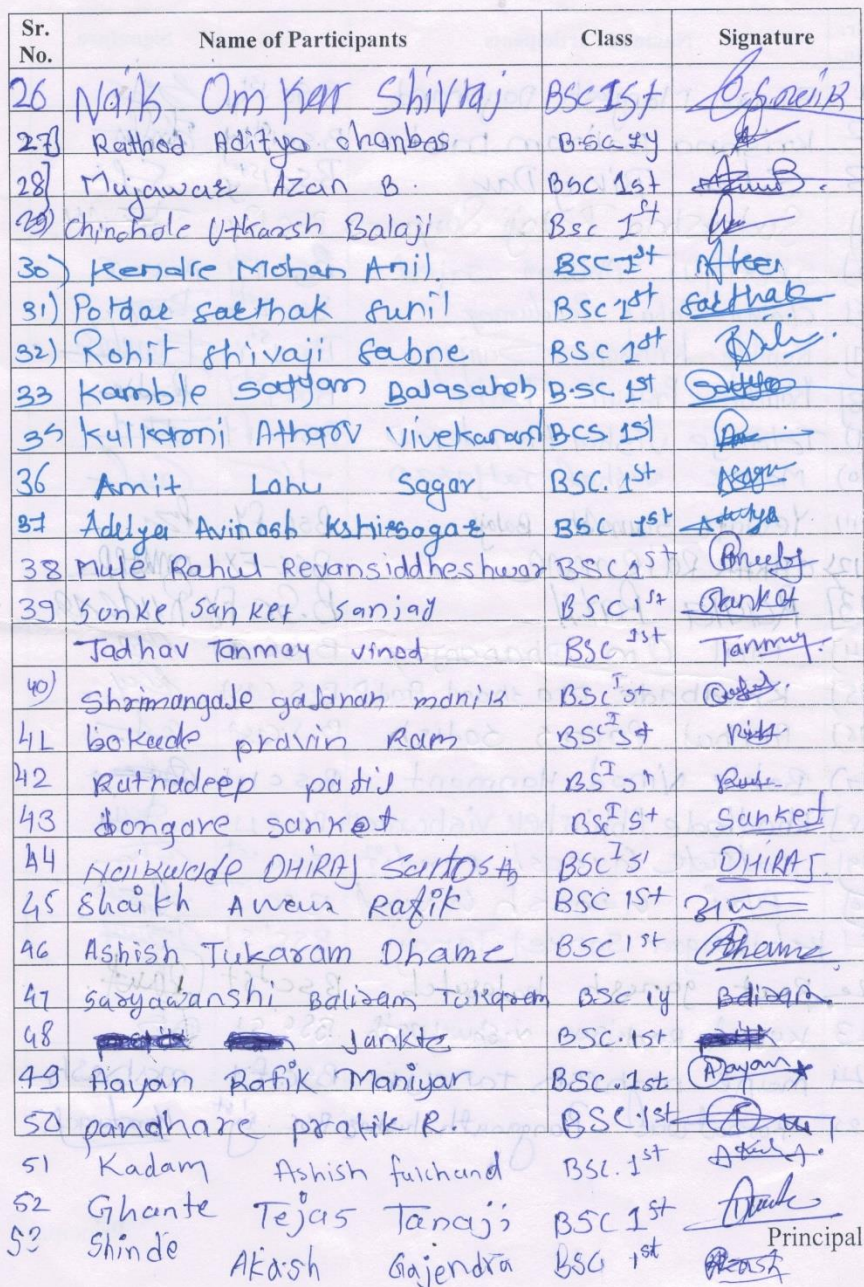 Sr. No. Name of Participants Class Signature
26 Naik Omkar Shivraj BSC 1st
27) Rathod Aditya Dhanbas B.Sc. 1y
28] Mujawar Azan B. BSC 1st
29) Chinchole Utkarsh Balaji BSC 1st
30) Kendre Mohan Anil BSC Ist
31) Potdar Sarthak Sunil BSC 1st Sarthak
32) Rohit Shivaji Sabne BSC 1st
33 Kamble Satyam Balasaheb B.SC. 1st Satyam
35 Kulkarni Atharv vivekanand BCS 1st
36 Amit Lahu Sagar BSC. 1st
37 Aditya Avinash Kshirsagar BSC 1st Aditya
38 Mule Rahul Revansiddheshwar BSC 1st
39 Sunke Sanket Sanjay BSC 1st Sanket
Jadhav Tanmay vinod BSC 1st Tanmay.
40) Shrimangale gajanan manik BSC Ist
41 bokade pravin Ram BSC Ist
42 Ratnadeep patil BS Ist
43 dongare sanket BSC Ist Sanket
44 Naikwade DHIRAJ Santosh BSC Is DHIRAJ.
45 Shaikh Awew Rafik BSC 1st
46 Ashish Tukaram Dhame BSC 1st Dhame
47 Suryawanshi Baliram Tukaram BSC 1y Baliram
48 Jankte BSC.1st
49 Aayan Rafik Maniyar BSC.1st Aayan
50 pandhare pratik R. BSC.1st
51 Kadam Ashish fulchand BSC. 1st
52 Ghante Tejas Tanaji BSC 1st
53 Shinde Akash Gajendra BSC 1st Akash
Principal